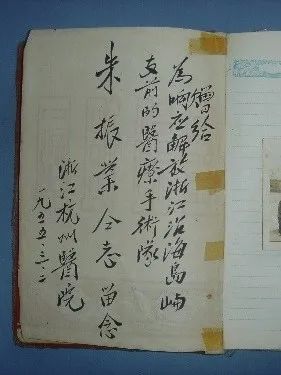 赠给
為响应解放浙江沿海島屿
支前的醫療手術隊
朱振業仝志留念
浙江杭州醫院
一九五五.三.二